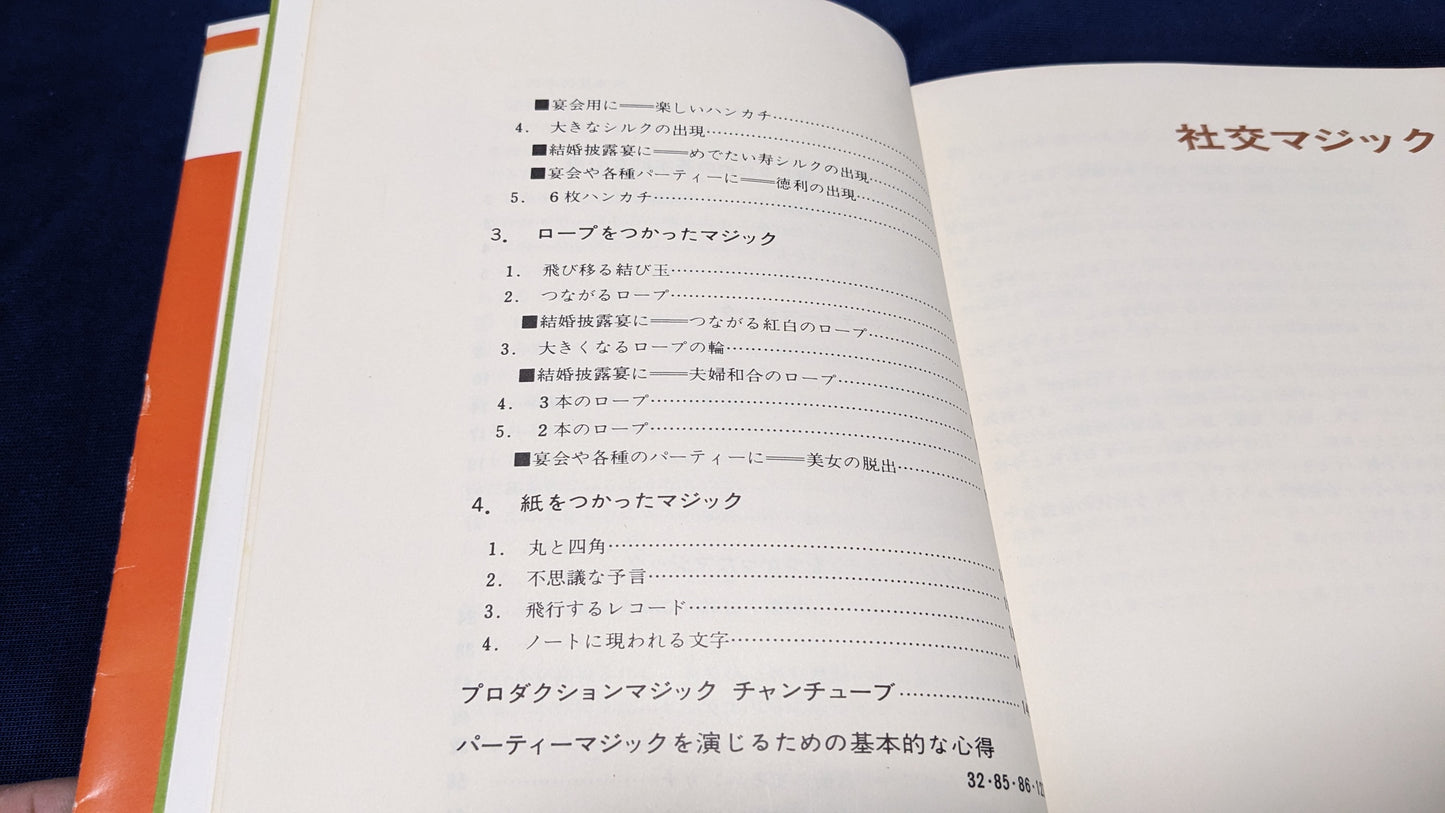 ■宴会用に――楽しいハンカチ
4. 大きなシルクの出現
■結婚披露宴に――めでたい寿シルクの出現
■宴会や各種パーティーに――徳利の出現
5. 6枚ハンカチ
3. ロープをつかったマジック
1. 飛び移る結び玉
2. つながるロープ
■結婚披露宴に――つながる紅白のロープ
3. 大きくなるロープの輪
■結婚披露宴に――夫婦和合のロープ
4. 3本のロープ
5. 2本のロープ
■宴会や各種のパーティーに――美女の脱出
4. 紙をつかったマジック
1. 丸と四角
2. 不思議な予言
3. 飛行するレコード
4. ノートに現われる文字
プロダクションマジック チャンチューブ
パーティーマジックを演じるための基本的な心得
32·85·86·
社交マジック